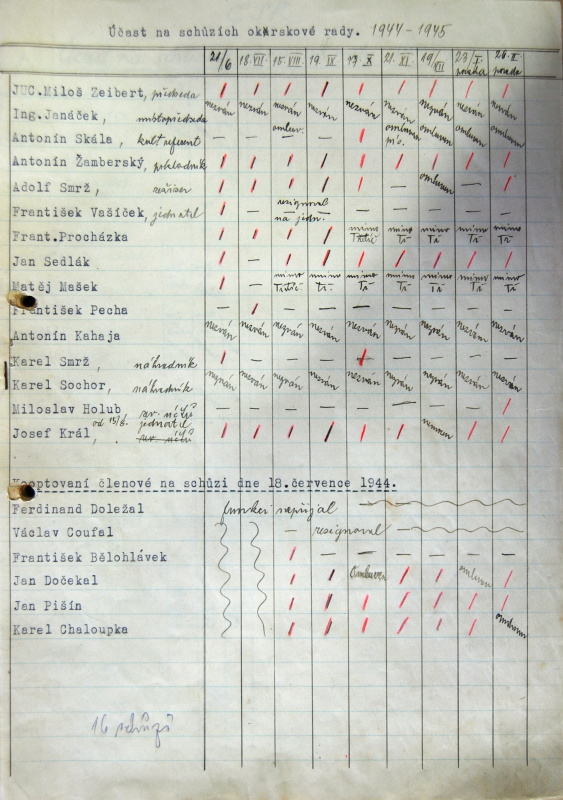 Účast na schůzích okrskové rady. 1944-1945
21/6 18.VII. 15.VIII. 19.IX. 17.X. 21.XI. 19/XII 23/I. porada 20.II. porada
JUC.Miloš Zeibert, předseda / / / / / / / / /
Ing.Janáček, místopředseda nezván nezván nezván nezván nezván nezván nezván nezván nezván
Antonín Skála, kult referent — — omluv. — / omluven omluven omluven omluven
Antonín Žamberský, pokladník / / / / / / / / /
Adolf Smrž, / / / / / — omluven — /
František Vašíček, jednatel / — resignoval na jedn.
Frant.Procházka / / / / mimo Třebíč mimo Tř mimo Tř mimo Tř mimo Tř
Jan Sedlák / — / / / / / / /
Matěj Mašek / — mimo Třebíč mimo Tř. mimo Tř mimo Tř mimo Tř mimo Tř mimo Tř
František Pecha — / — — — — — — —
Antonín Kahaja nezván nezván nezván nezván nezván nezván nezván nezván nezván
Karel Smrž, náhradník / — — — / — — — —
Karel Sochor, náhradník nezván nezván nezván nezván nezván nezván nezván nezván nezván
Miloslav Holub rev. účtů — — — — — — — — /
Josef Král, od 15/8. jednatel rev. účtů / / / / / / nemocen / /
Kooptovaní členové na schůzi dne 18.července 1944.
Ferdinand Doležal funkci nepřijal
Václav Coufal — resignoval
František Bělohlávek / — — — — — —
Jan Dočekal / / Omluven / / omluven /
Jan Pišín / / / / / / /
Karel Chaloupka / / / / / / omluven
16 schůzí